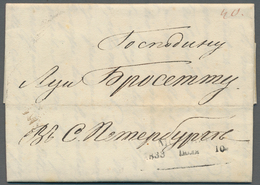 Господину
Луи Бросетту
Въ С. Петербургѣ
833 Июля 10